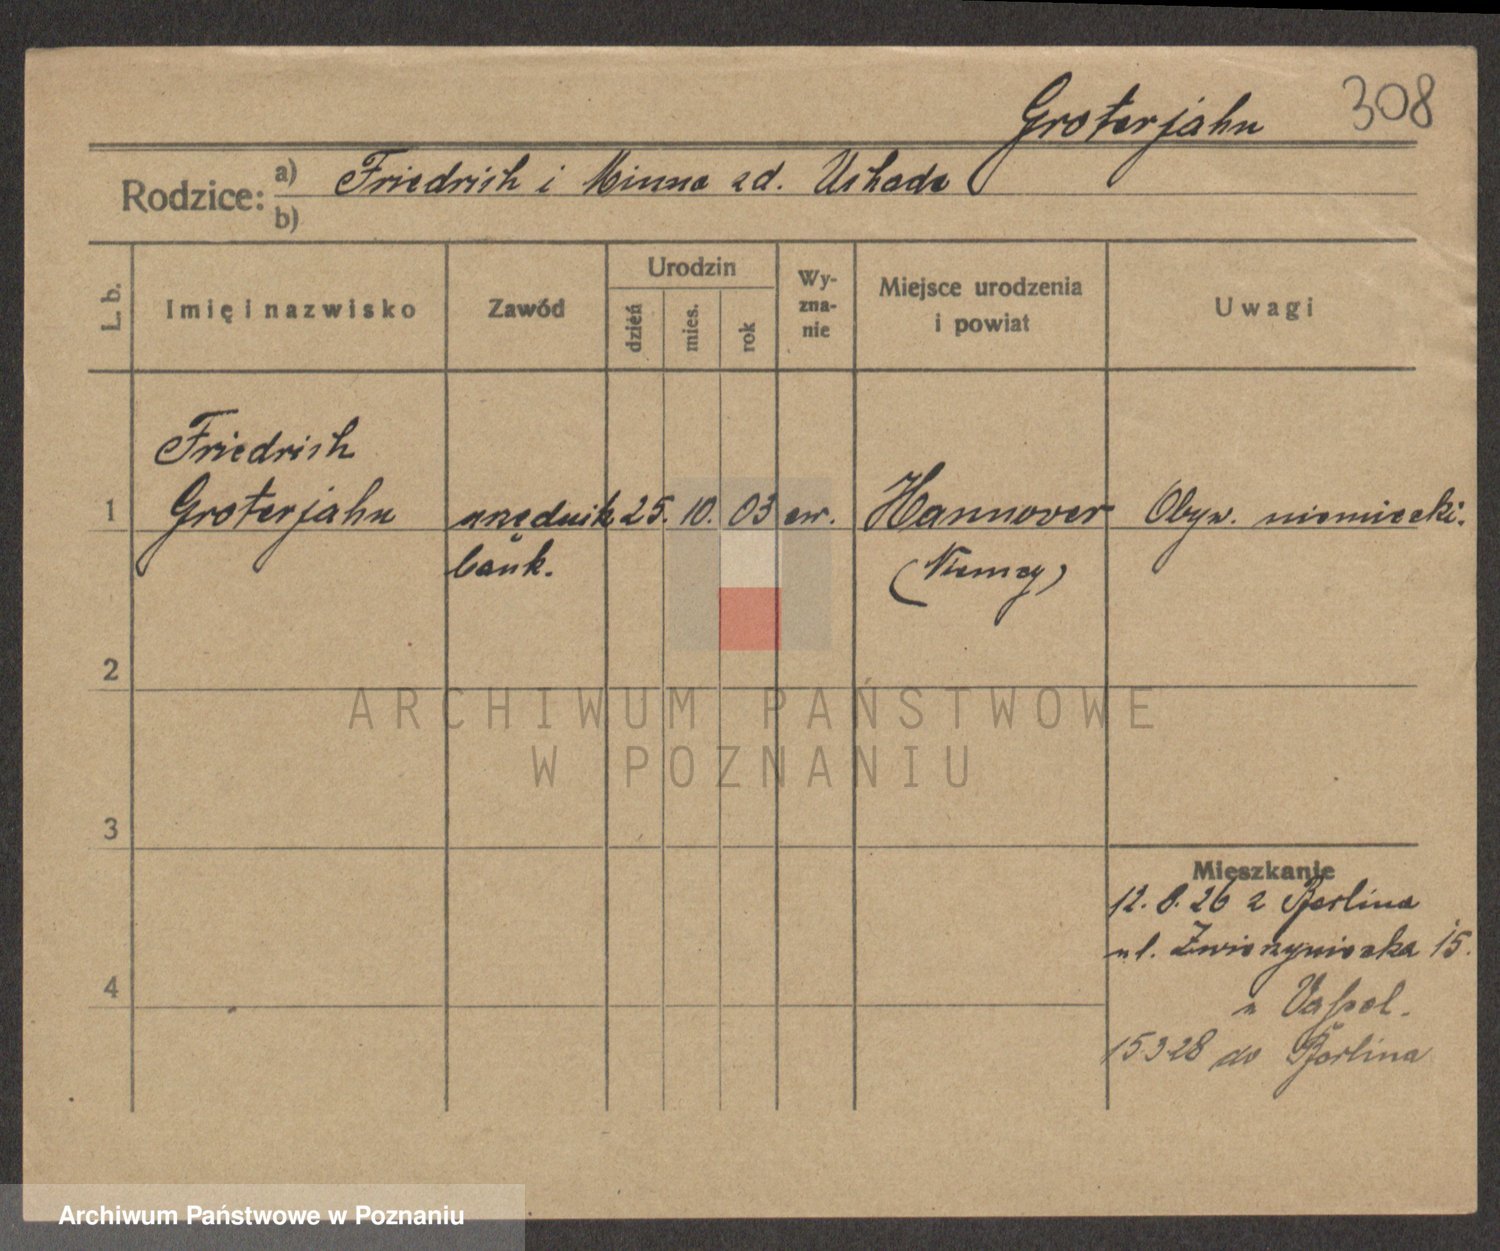 Groterjahn 308
Rodzice: a) Friedrich i Minna zd. Uchade
b)
L. b. Imię i nazwisko Zawód Urodzin dzień mies. rok Wy-zna-nie Miejsce urodzenia i powiat Uwagi
Friedrich
1 Groterjahn urzędnik 25. 10. 03 ew. Hannover Obyw. niemiecki.
bank. (Niemcy)
2
ARCHIWUM PAŃSTWOWE
W POZNANIU
3
Mieszkanie
12. 8. 26 z Berlina
ul. Zwierzyniecka 15.
4
u
15 3 28 do Berlina
Archiwum Państwowe w Poznaniu